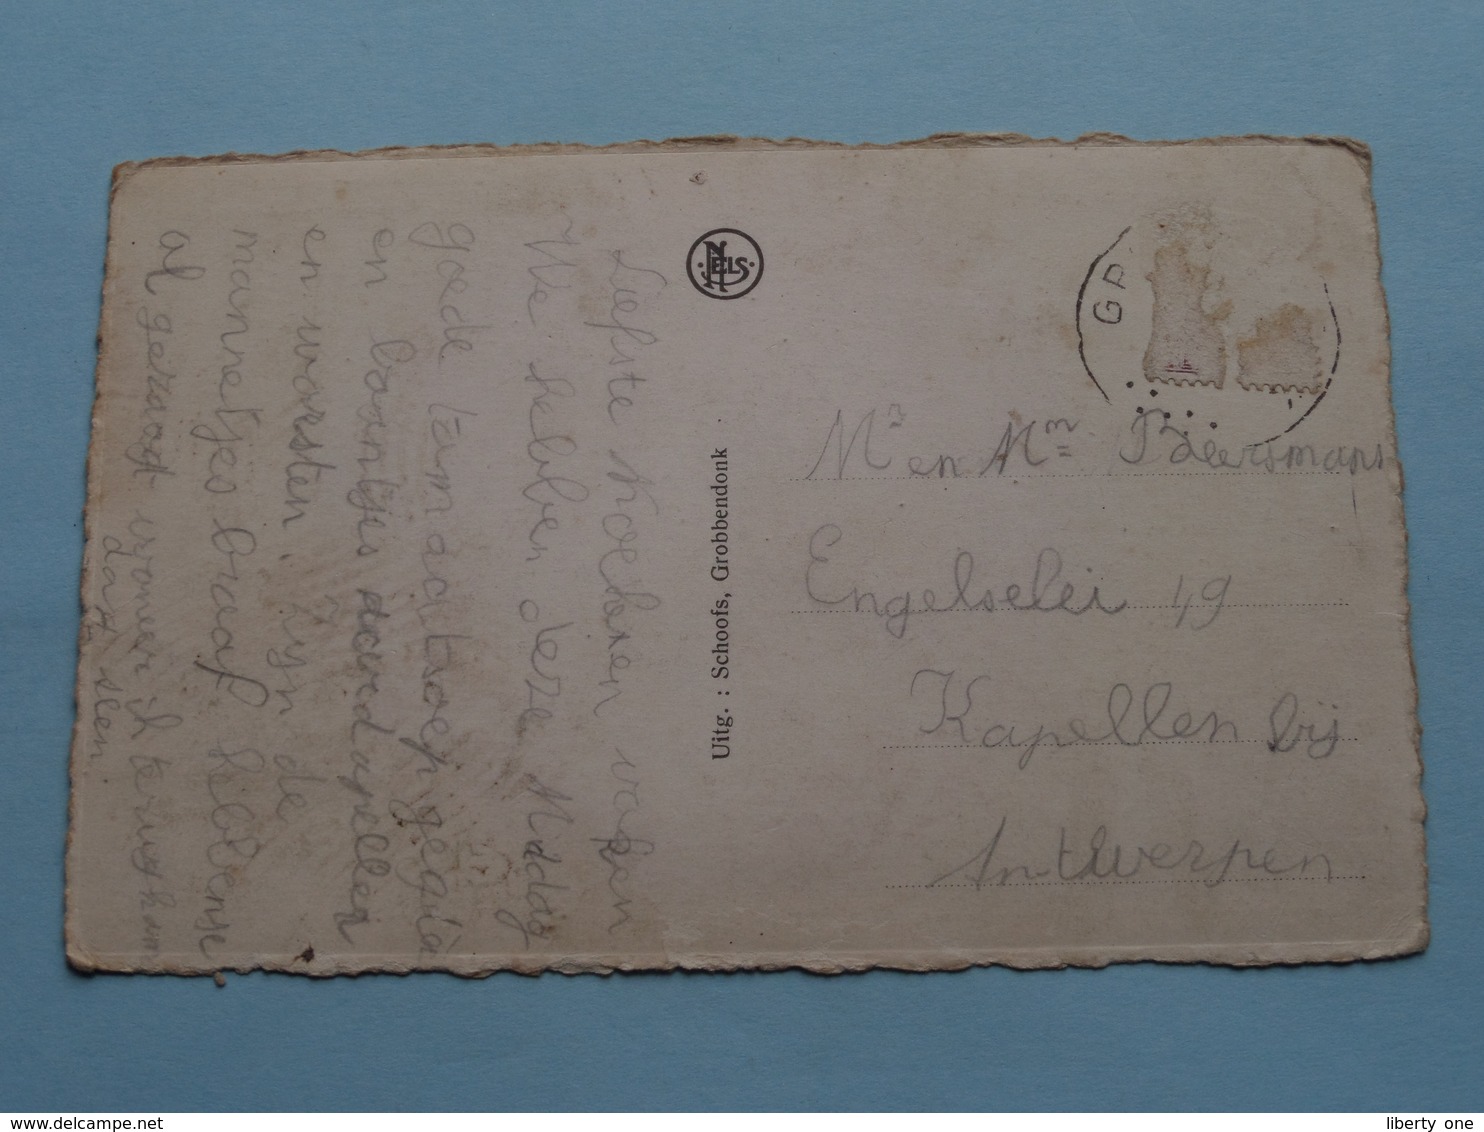 Liefste Moeke en vake
We hebben deze Middag
goede tomaat soep gegeten
en boontjes aardapellen
en worsten. Zijn de
mannetjes braaf. hebben se
al gezaagt wanneer ik terugkom
dast sien.
NELS
Uitg. : Schoofs, Grobbendonk
GR
Mr en Mm Peersmans
Engelselei 49
Kapellen bij
Antwerpen
delcampe.net
liberty one